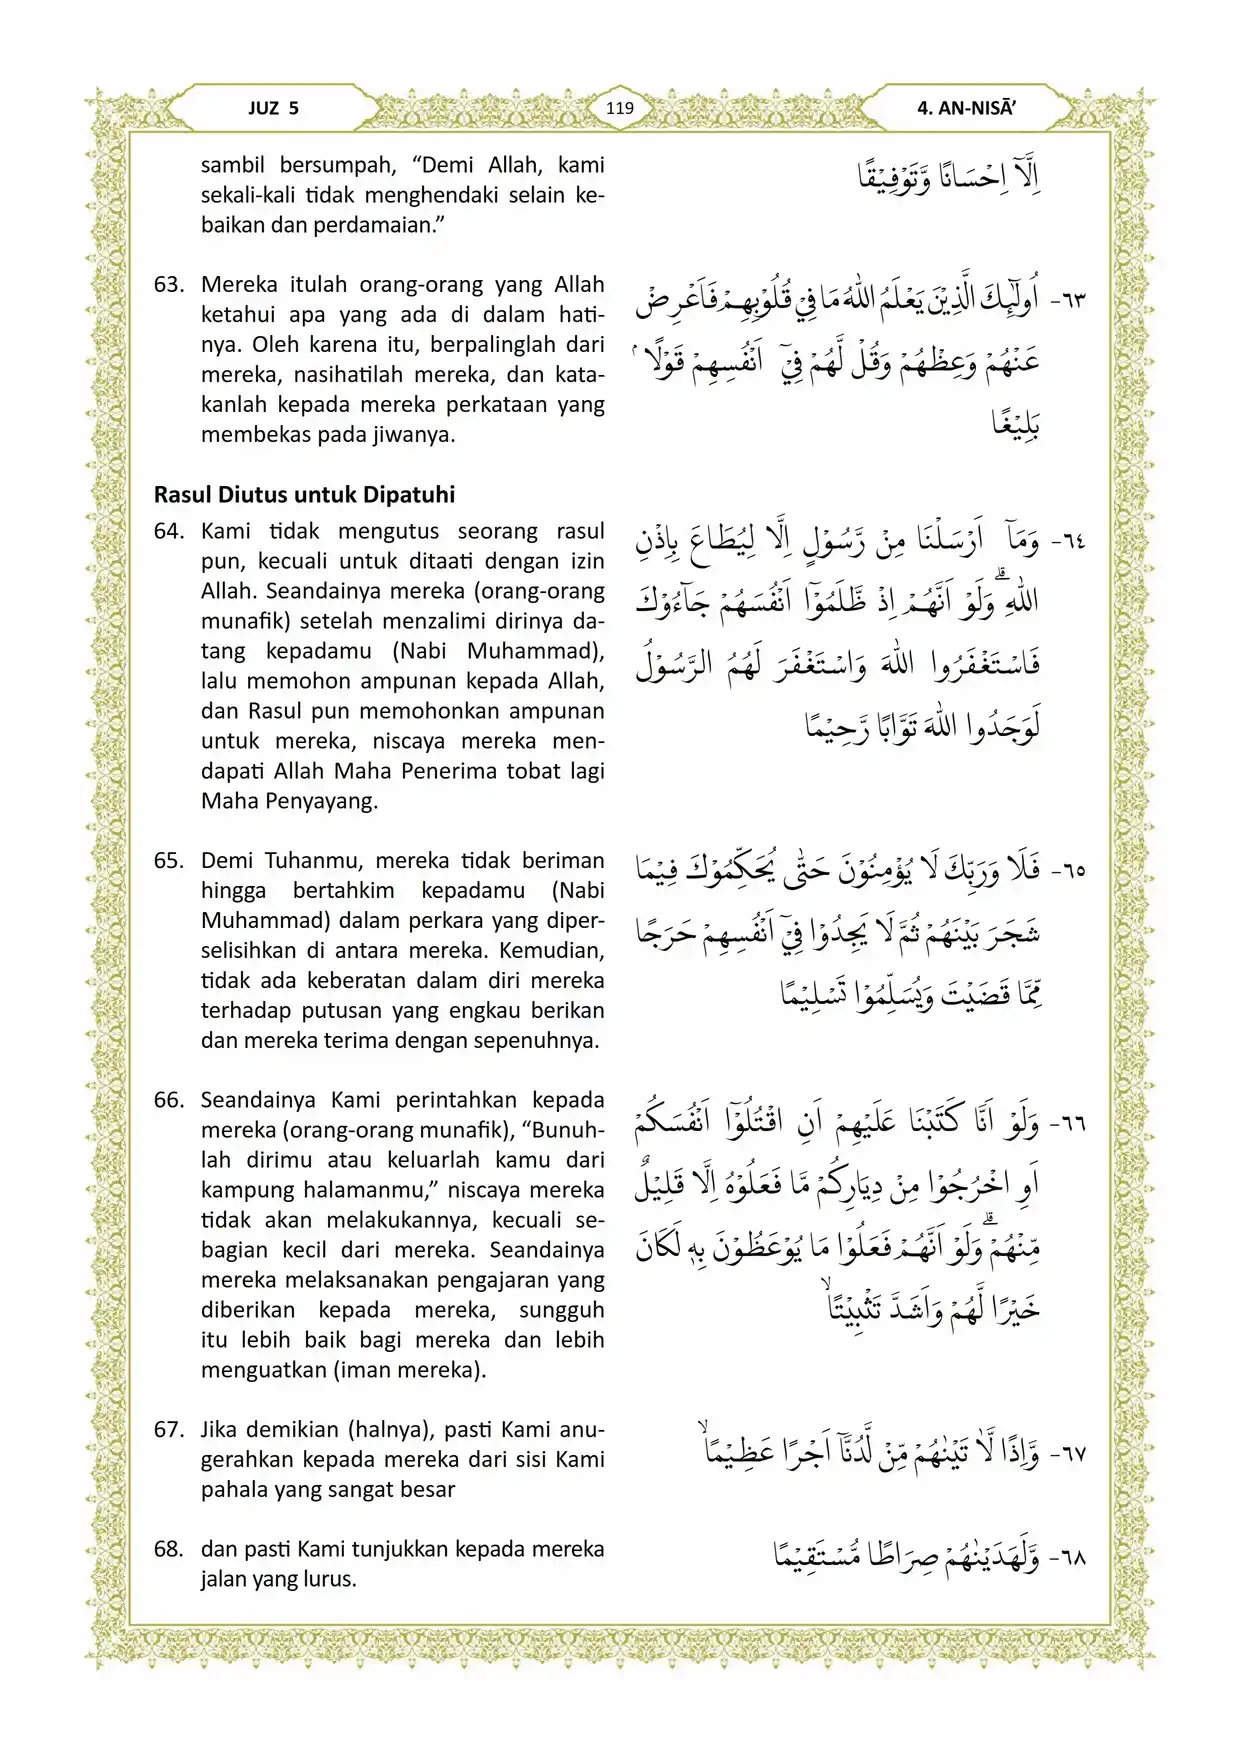 JUZ 5
119
4. AN-NISĀ’
sambil bersumpah, “Demi Allah, kami
sekali-kali tidak menghendaki selain ke-
baikan dan perdamaian.”
اِلَّآ اِحْسَانًا وَّتَوْفِيْقًا
63. Mereka itulah orang-orang yang Allah
ketahui apa yang ada di dalam hati-
nya. Oleh karena itu, berpalinglah dari
mereka, nasihatilah mereka, dan kata-
kanlah kepada mereka perkataan yang
membekas pada jiwanya.
٦٣- اُولٰۤىِٕكَ الَّذِيْنَ يَعْلَمُ اللّٰهُ مَا فِيْ قُلُوْبِهِمْ فَاَعْرِضْ
عَنْهُمْ وَعِظْهُمْ وَقُلْ لَّهُمْ فِيْٓ اَنْفُسِهِمْ قَوْلًا ۢ
بَلِيْغًا
Rasul Diutus untuk Dipatuhi
64. Kami tidak mengutus seorang rasul
pun, kecuali untuk ditaati dengan izin
Allah. Seandainya mereka (orang-orang
munafik) setelah menzalimi dirinya da-
tang kepadamu (Nabi Muhammad),
lalu memohon ampunan kepada Allah,
dan Rasul pun memohonkan ampunan
untuk mereka, niscaya mereka men-
dapati Allah Maha Penerima tobat lagi
Maha Penyayang.
٦٤- وَمَآ اَرْسَلْنَا مِنْ رَّسُوْلٍ اِلَّا لِيُطَاعَ بِاِذْنِ
اللّٰهِ ۗوَلَوْ اَنَّهُمْ اِذْ ظَّلَمُوْٓا اَنْفُسَهُمْ جَاۤءُوْكَ
فَاسْتَغْفَرُوا اللّٰهَ وَاسْتَغْفَرَ لَهُمُ الرَّسُوْلُ
لَوَجَدُوا اللّٰهَ تَوَّابًا رَّحِيْمًا
65. Demi Tuhanmu, mereka tidak beriman
hingga bertahkim kepadamu (Nabi
Muhammad) dalam perkara yang diper-
selisihkan di antara mereka. Kemudian,
tidak ada keberatan dalam diri mereka
terhadap putusan yang engkau berikan
dan mereka terima dengan sepenuhnya.
٦٥- فَلَا وَرَبِّكَ لَا يُؤْمِنُوْنَ حَتّٰى يُحَكِّمُوْكَ فِيْمَا
شَجَرَ بَيْنَهُمْ ثُمَّ لَا يَجِدُوْا فِيْٓ اَنْفُسِهِمْ حَرَجًا
مِّمَّا قَضَيْتَ وَيُسَلِّمُوْا تَسْلِيْمًا
66. Seandainya Kami perintahkan kepada
mereka (orang-orang munafik), “Bunuh-
lah dirimu atau keluarlah kamu dari
kampung halamanmu,” niscaya mereka
tidak akan melakukannya, kecuali se-
bagian kecil dari mereka. Seandainya
mereka melaksanakan pengajaran yang
diberikan kepada mereka, sungguh
itu lebih baik bagi mereka dan lebih
menguatkan (iman mereka).
٦٦- وَلَوْ اَنَّا كَتَبْنَا عَلَيْهِمْ اَنِ اقْتُلُوْٓا اَنْفُسَكُمْ
اَوِ اخْرُجُوْا مِنْ دِيَارِكُمْ مَّا فَعَلُوْهُ اِلَّا قَلِيْلٌ
مِّنْهُمْ ۗوَلَوْ اَنَّهُمْ فَعَلُوْا مَا يُوْعَظُوْنَ بِهٖ لَكَانَ
خَيْرًا لَّهُمْ وَاَشَدَّ تَثْبِيْتًاۙ
67. Jika demikian (halnya), pasti Kami anu-
gerahkan kepada mereka dari sisi Kami
pahala yang sangat besar
٦٧- وَّاِذًا لَّاٰتَيْنٰهُمْ مِّنْ لَّدُنَّآ اَجْرًا عَظِيْمًاۙ
68. dan pasti Kami tunjukkan kepada mereka
jalan yang lurus.
٦٨- وَّلَهَدَيْنٰهُمْ صِرَاطًا مُّسْتَقِيْمًا